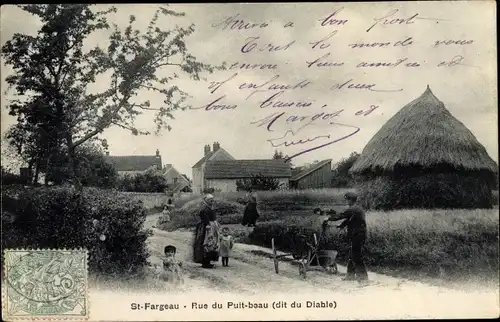 Arrivé à bon port
Tout le monde vous
envoie bien amitiés et
les enfants deux
bons baisers
Margot et
St-Fargeau _ Rue du Puit-beau (dit du Diable)